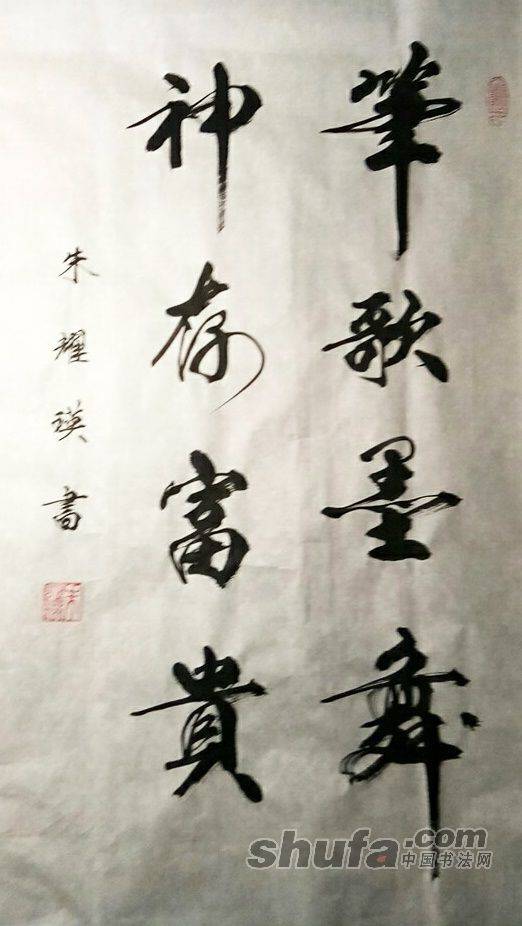 筆歌墨舞
神存富貴
朱耀瑛書
shufa.com
中国书法网